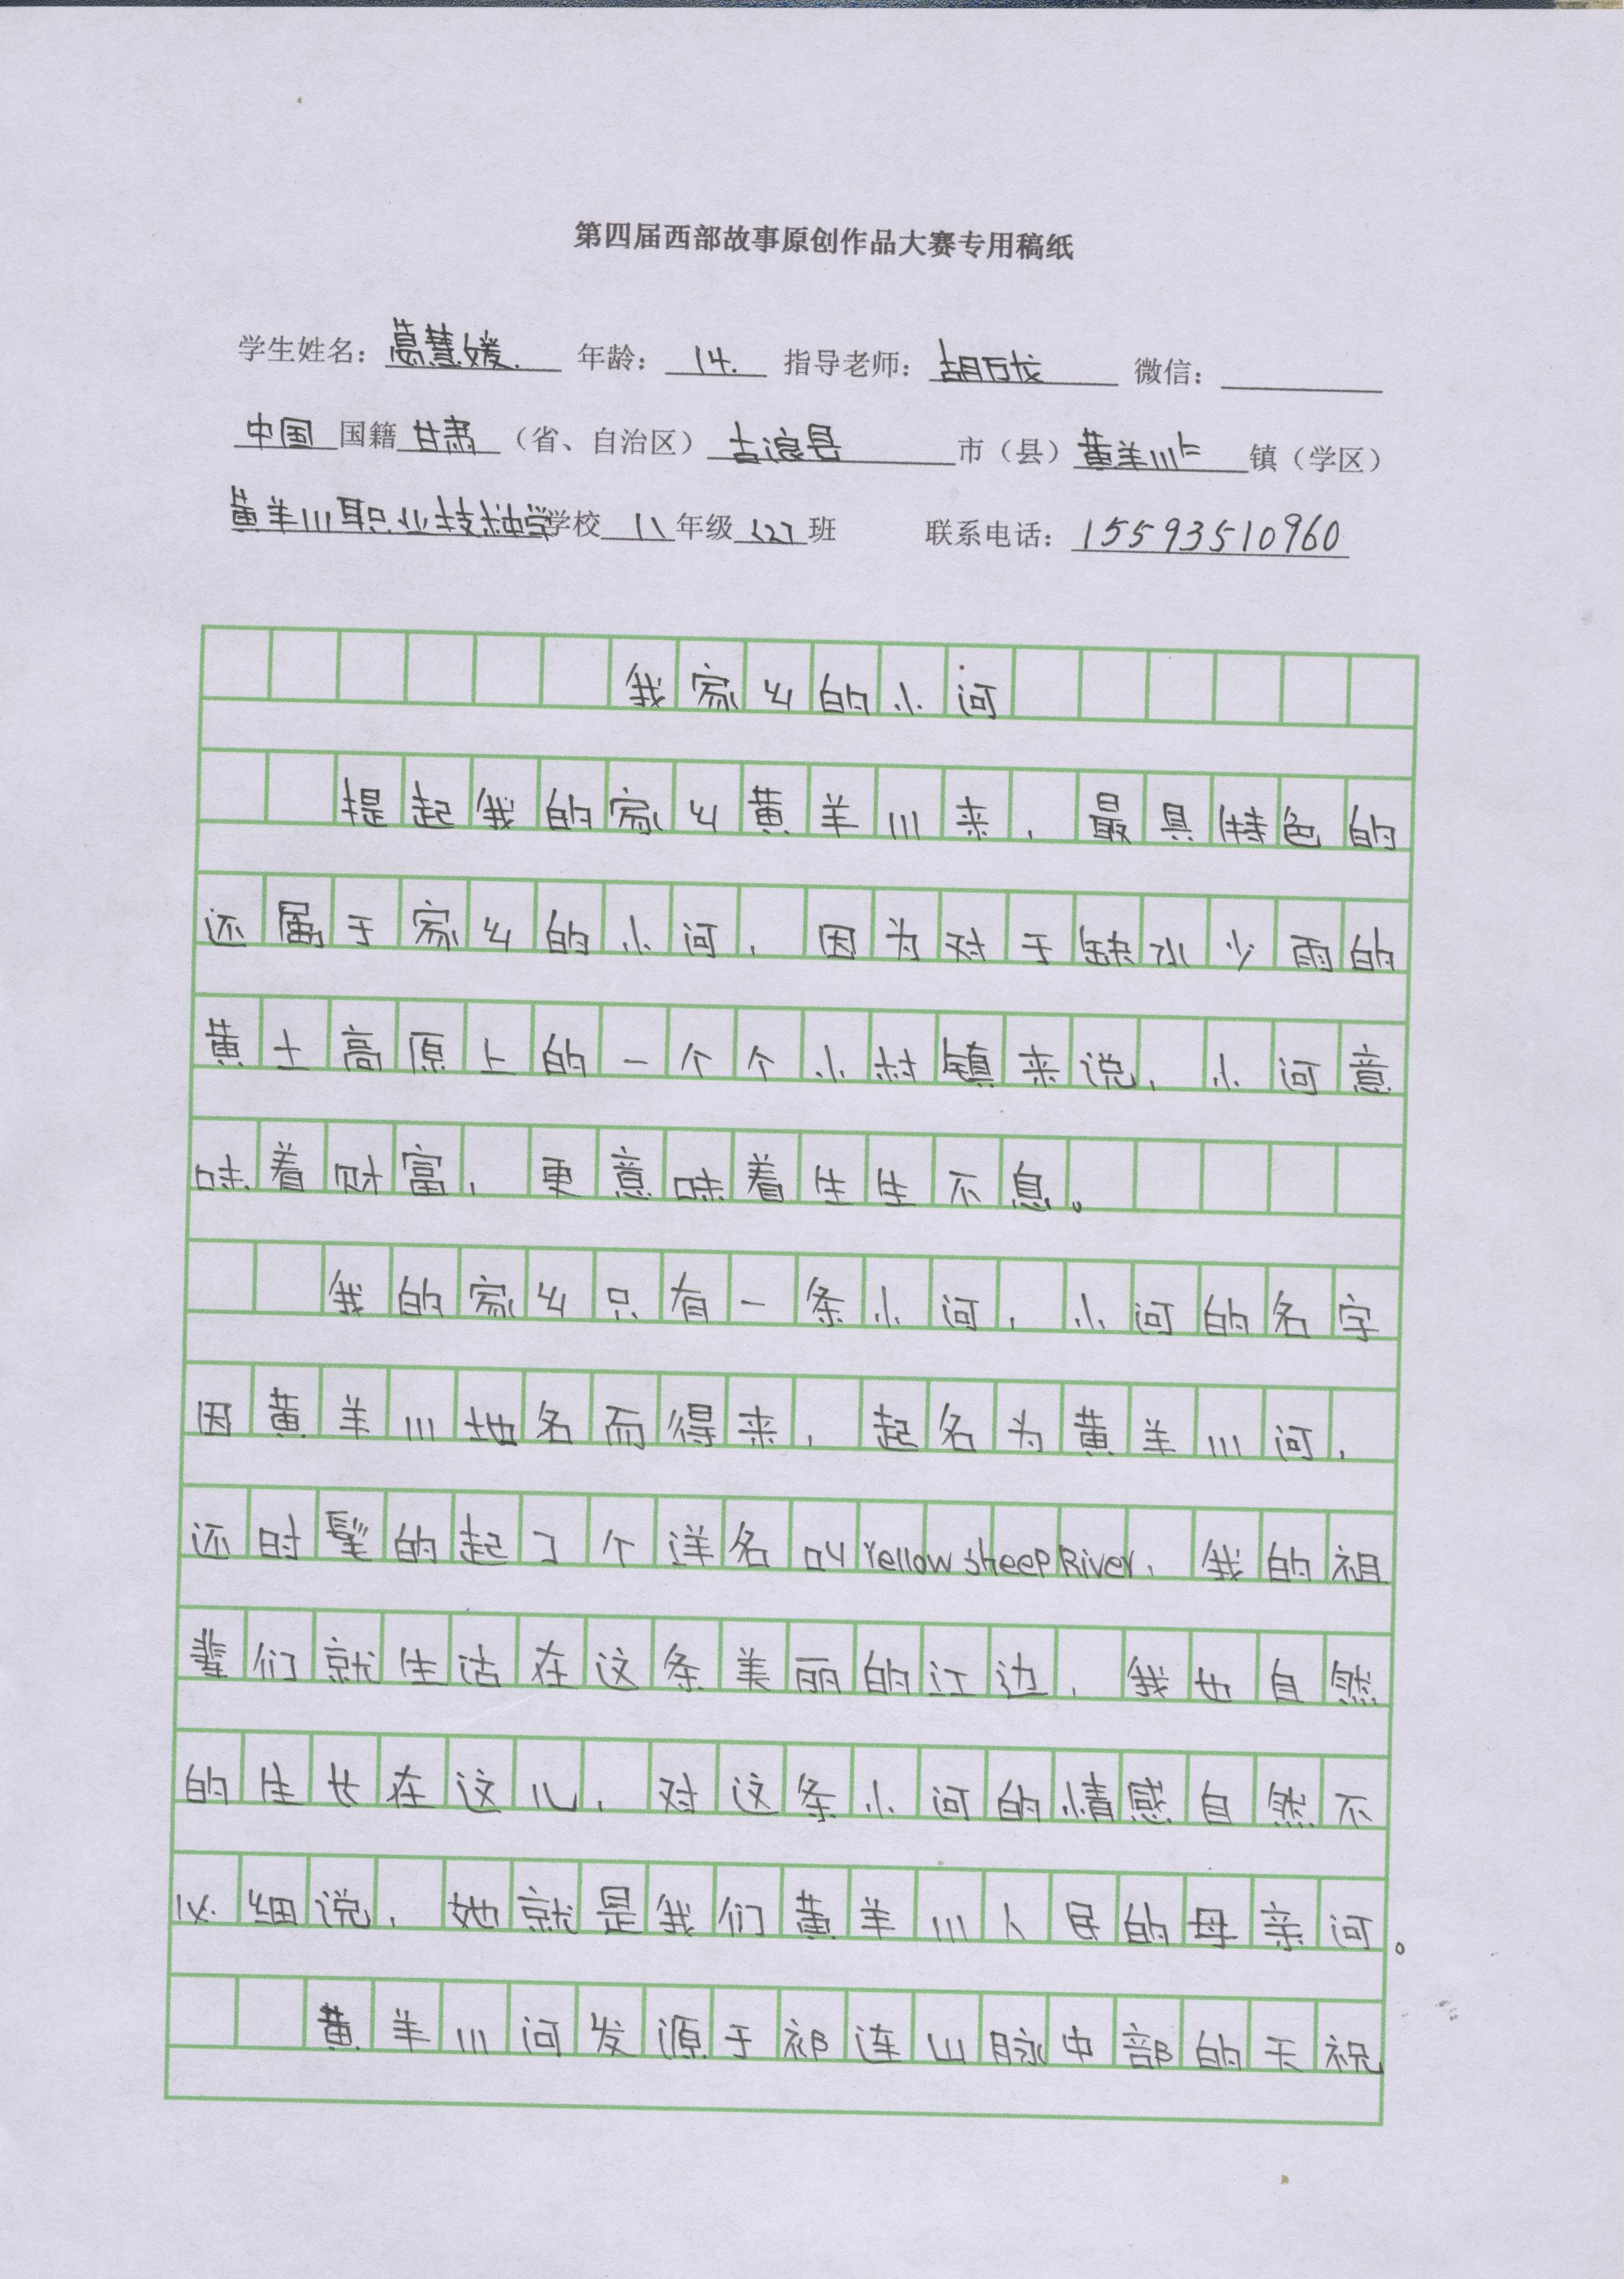 第四届西部故事原创作品大赛专用稿纸
学生姓名：葛慧媛 年龄：14. 指导老师：胡万龙 微信：
中国国籍甘肃（省、自治区）古浪县市（县）黄羊川镇（学区）
黄羊川职业技术中学学校八年级（2）班 联系电话：15593510960
我家乡的小河
提起我的家乡黄羊川来，最具特色的
还属于家乡的小河，因为对于缺水少雨的
黄土高原上的一个个小村镇来说，小河意
味着财富，更意味着生生不息。
我的家乡只有一条小河，小河的名字
因黄羊川地名而得来，起名为黄羊川河，
还时髦的起了个洋名叫Yellow sheep River，我的祖
辈们就生活在这条美丽的江边，我也自然
的生长在这儿，对这条小河的情感自然不
必细说，她就是我们黄羊川人民的母亲河。
黄羊川河发源于祁连山脉中部的天祝